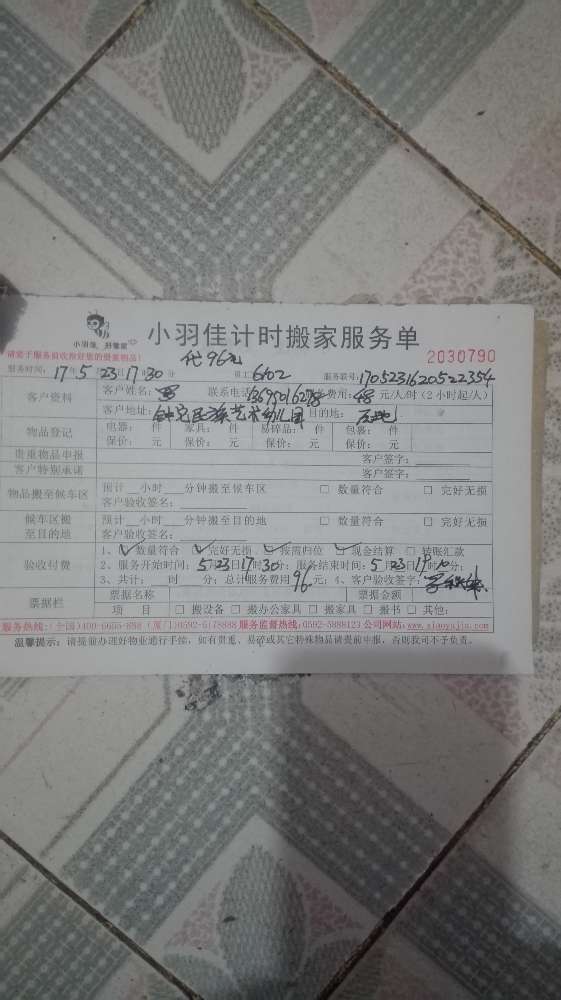 小羽佳 好管家
小羽佳计时搬家服务单
请要于服务前收存好您的贵重物品!
代96元
2030790
服务时间: 17年5月23日17时30分 员工 6102 服务联号: 170523162052 2354
客户资料
客户姓名: 联系电话 服务费用: 48 元/人/时(2小时起/人)
客户地址: 钟宅民族艺术幼儿园 目的地:
物品登记
电器: 件 家具: 件 易碎品: 件 包裹: 件
保价: 元 保价: 元 保价: 元 保价: 元
贵重物品申报 客户签字:
客户特别承诺 客户签字:
物品搬至候车区
预计 小时 分钟搬至候车区 □ 数量符合 □ 完好无损
客户验收签名:
候车区搬至目的地
预计 小时 分钟搬至目的地 □ 数量符合 □ 完好无损
客户验收签名:
验收付费
1、☑数量符合 ☑完好无损 ☑按照归位 ☑现金结算 □ 转账汇款
2、服务开始时间: 5月23日17时30分; 服务结束时间: 5月23日19时10分;
3、共计: 时 分; 总计服务费用 96 元; 4、客户验收签字:
票据栏
票据名称 票据金额
项 目 □ 搬设备 □ 搬办公家具 □ 搬家具 □ 搬书 □ 其他:
服务热线:(全国)400-6655-888 (厦门)0592-6178888 服务监督热线:0592-5888123 公司网站:www.xiaoyujia.com
温馨提示: 请提前办理好物业通行手续, 如有贵重、易碎或其它特殊物品请提前申报, 否则我司不予负责。